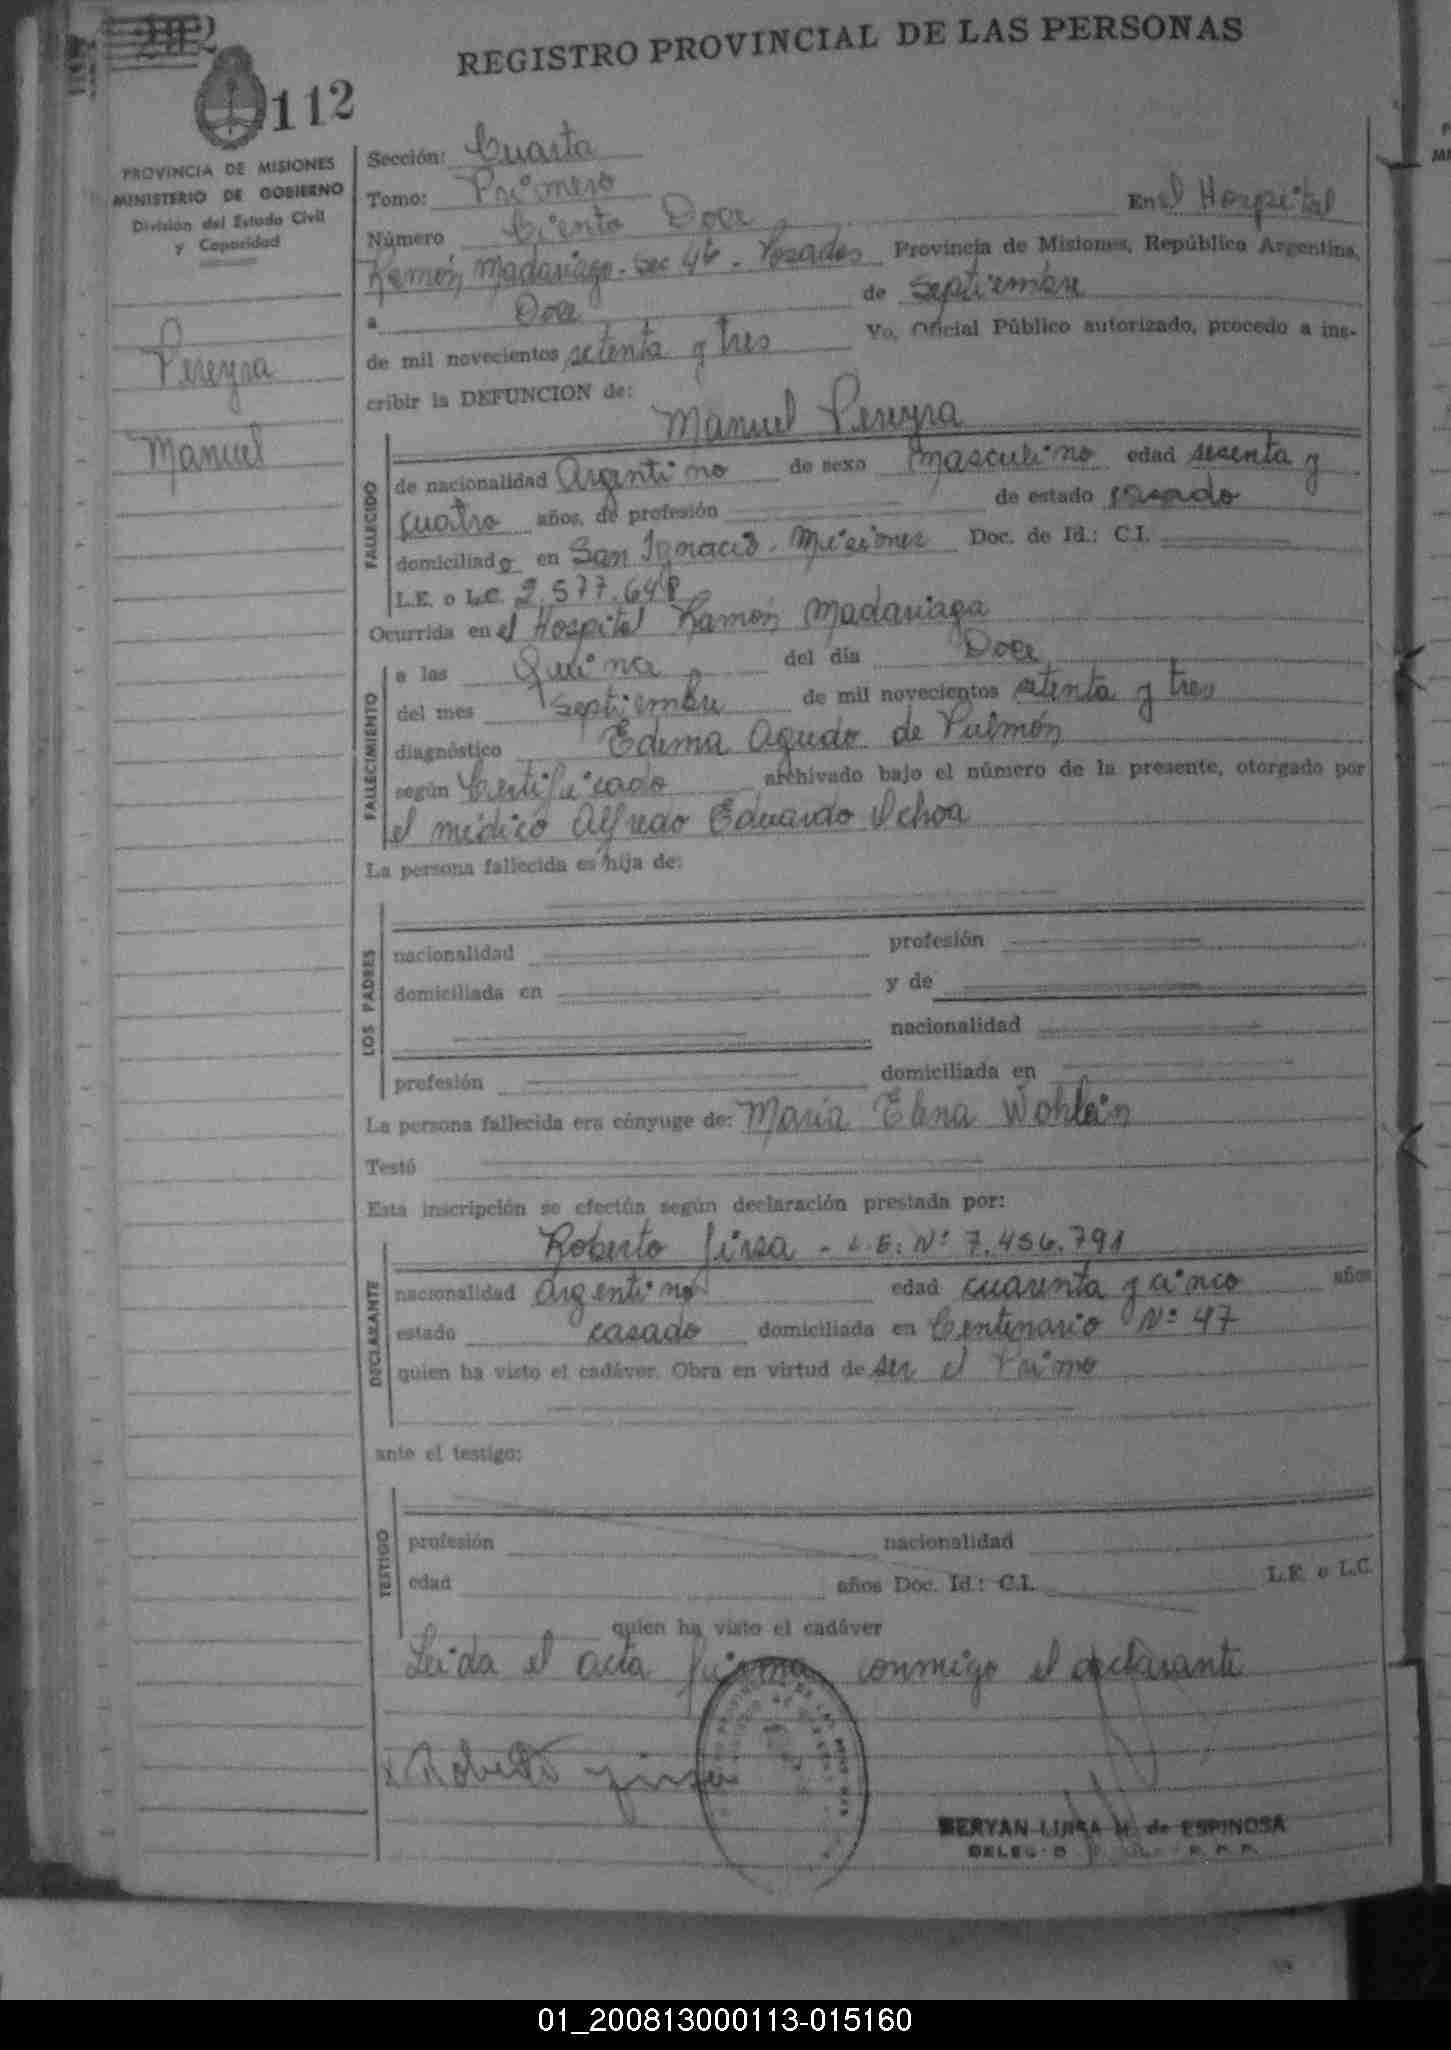 REGISTRO PROVINCIAL DE LAS PERSONAS
112
PROVINCIA DE MISIONES
MINISTERIO DE GOBIERNO
División del Estado Civil
y Capacidad
Pereyra
Manuel
Sección: Cuarta
Tomo: Primero
Número Ciento Doce En el Hospital
Ramón Madariaga - Sec 4ta - Posadas Provincia de Misiones, República Argentina,
a Doce de Septiembre
de mil novecientos setenta y tres Yo, Oficial Público autorizado, procedo a ins-
cribir la DEFUNCION de:
Manuel Pereyra
FALLECIDO
de nacionalidad Argentino de sexo Masculino edad sesenta y
cuatro años, de profesión de estado casado
domiciliado en San Ignacio - Misiones Doc. de Id.: C.I.
L.E. o L.C. 2.577.648
Ocurrida en el Hospital Ramón Madariaga
FALLECIMIENTO
a las Quince del día Doce
del mes Septiembre de mil novecientos setenta y tres
diagnóstico Edema Agudo de Pulmón
según Certificado archivado bajo el número de la presente, otorgado por
el médico Alfredo Eduardo Ochoa
La persona fallecida es hija de:
LOS PADRES
nacionalidad profesión
domiciliada en y de
nacionalidad
profesión domiciliada en
La persona fallecida era cónyuge de: María Elena
Testó
Esta inscripción se efectúa según declaración prestada por:
DECLARANTE
Roberto - L.E. Nº 7.456.791
nacionalidad Argentino edad cuarenta y cinco años
estado casado domiciliada en Centenario Nº 47
quien ha visto el cadáver. Obra en virtud de ser el Primo
ante el testigo:
TESTIGO
profesión nacionalidad
edad años Doc. Id.: C.I. L.E. o L.C.
quien ha visto el cadáver
Leída el acta firma conmigo el declarante
Roberto
LUISA M. de ESPINOSA
01_200813000113-015160